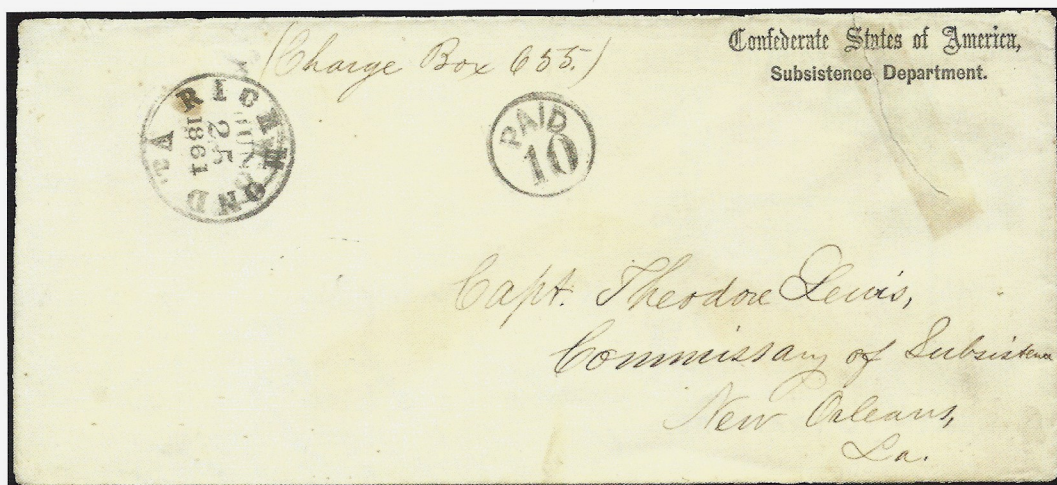 (Charge Box 655.)
Confederate States of America,
Subsistence Department.
RICHMOND VA.
JUN
25
1861
PAID
10
Capt. Theodore Lewis,
Commissary of Subsistence
New Orleans,
La.